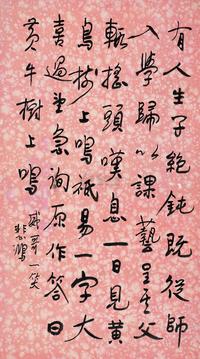 有人生子絕鈍既從師
入學歸以課藝呈其父
輒搖頭嘆息一日見黃
鳥樹上鳴祗易一字大
喜過望急詢原作答曰
黃牛樹上鳴
戚哥一笑